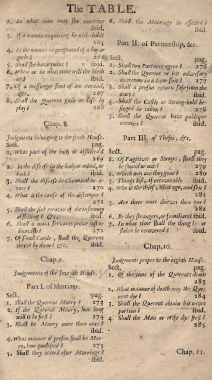 The TABLE.
2. In what time may she conceive
ibid.
3. If a woman enquiring be with child
263
4. Is the woman impregnated of a boy or
girle?
5. Shall she have twins? ibid.
6. When or in what time will the birth
be
7. Of a messenger sent of an errand,
&c.
8. Shall the Querent gain or lose by
play?
Chap. 8.
Judgments belonging to the sixth House.
Sect. pag.
1. What part of the body is afflicted
ibid.
2. Is the disease in the body or mind, or
both?
3. Shall the disease be Chronical or a-
cute?
4. What is the cause of the distemper?
271
5. Shall the sick recover of the infirmity
afflicted? ibid.
6. Shall a man servant prove just and
honest?
7. Of small Cattle, shall the Querent
thrive by them? &c. ibid.
Chap. 9.
Judgements of the seventh House.
Part I. of Marriage.
Sect. pag.
1. Shall the Querent Marry? 273
2. If the Querent Marry, how long
will it be first? 274
3. Shall he Marry more then once?
ibid.
4. What manner of person shall he Mar-
ry, how qualified? 275
5. Shall they accord after Marriage?
ibid.
6. Will the Marriage be effected?
ibid.
Part II. of Partnership, &c.
Sect. pag.
1. Shall two Partners agree? 276
2. Shall the Querent or his adversary
overcome in a Law suit? 277
3. Shall a person return safe from the
wars? ibid.
4. Shall the Castle or Strong-hold be-
sieged be taken? 278
5. Shall the Querent have publique
enemies? ibid.
Part III. of Thefts, &c.
Sect. pag.
1. Of Fugitives or Strayes, shall they
be found or not? 279
2. Which way are they gone?
3. Things lost, if recoverable ibid.
4. Who is the thief, what age, and sex?
281
5. Are there more thieves then one?
282
6. Be they strangers, or familiars? ibid.
7. In what time shall the thing lost or
stolen be recovered? ibid.
Chap. 10.
Judgments proper to the eighth House.
Sect. pag.
1. Of the time of the Querents death
283
2. What manner of death may the Que-
rent dye? 284
3. Shall the Querent obtain his wives
portion? ibid.
4. Shall the Man or Wife dye first?
285
Chap. 11.